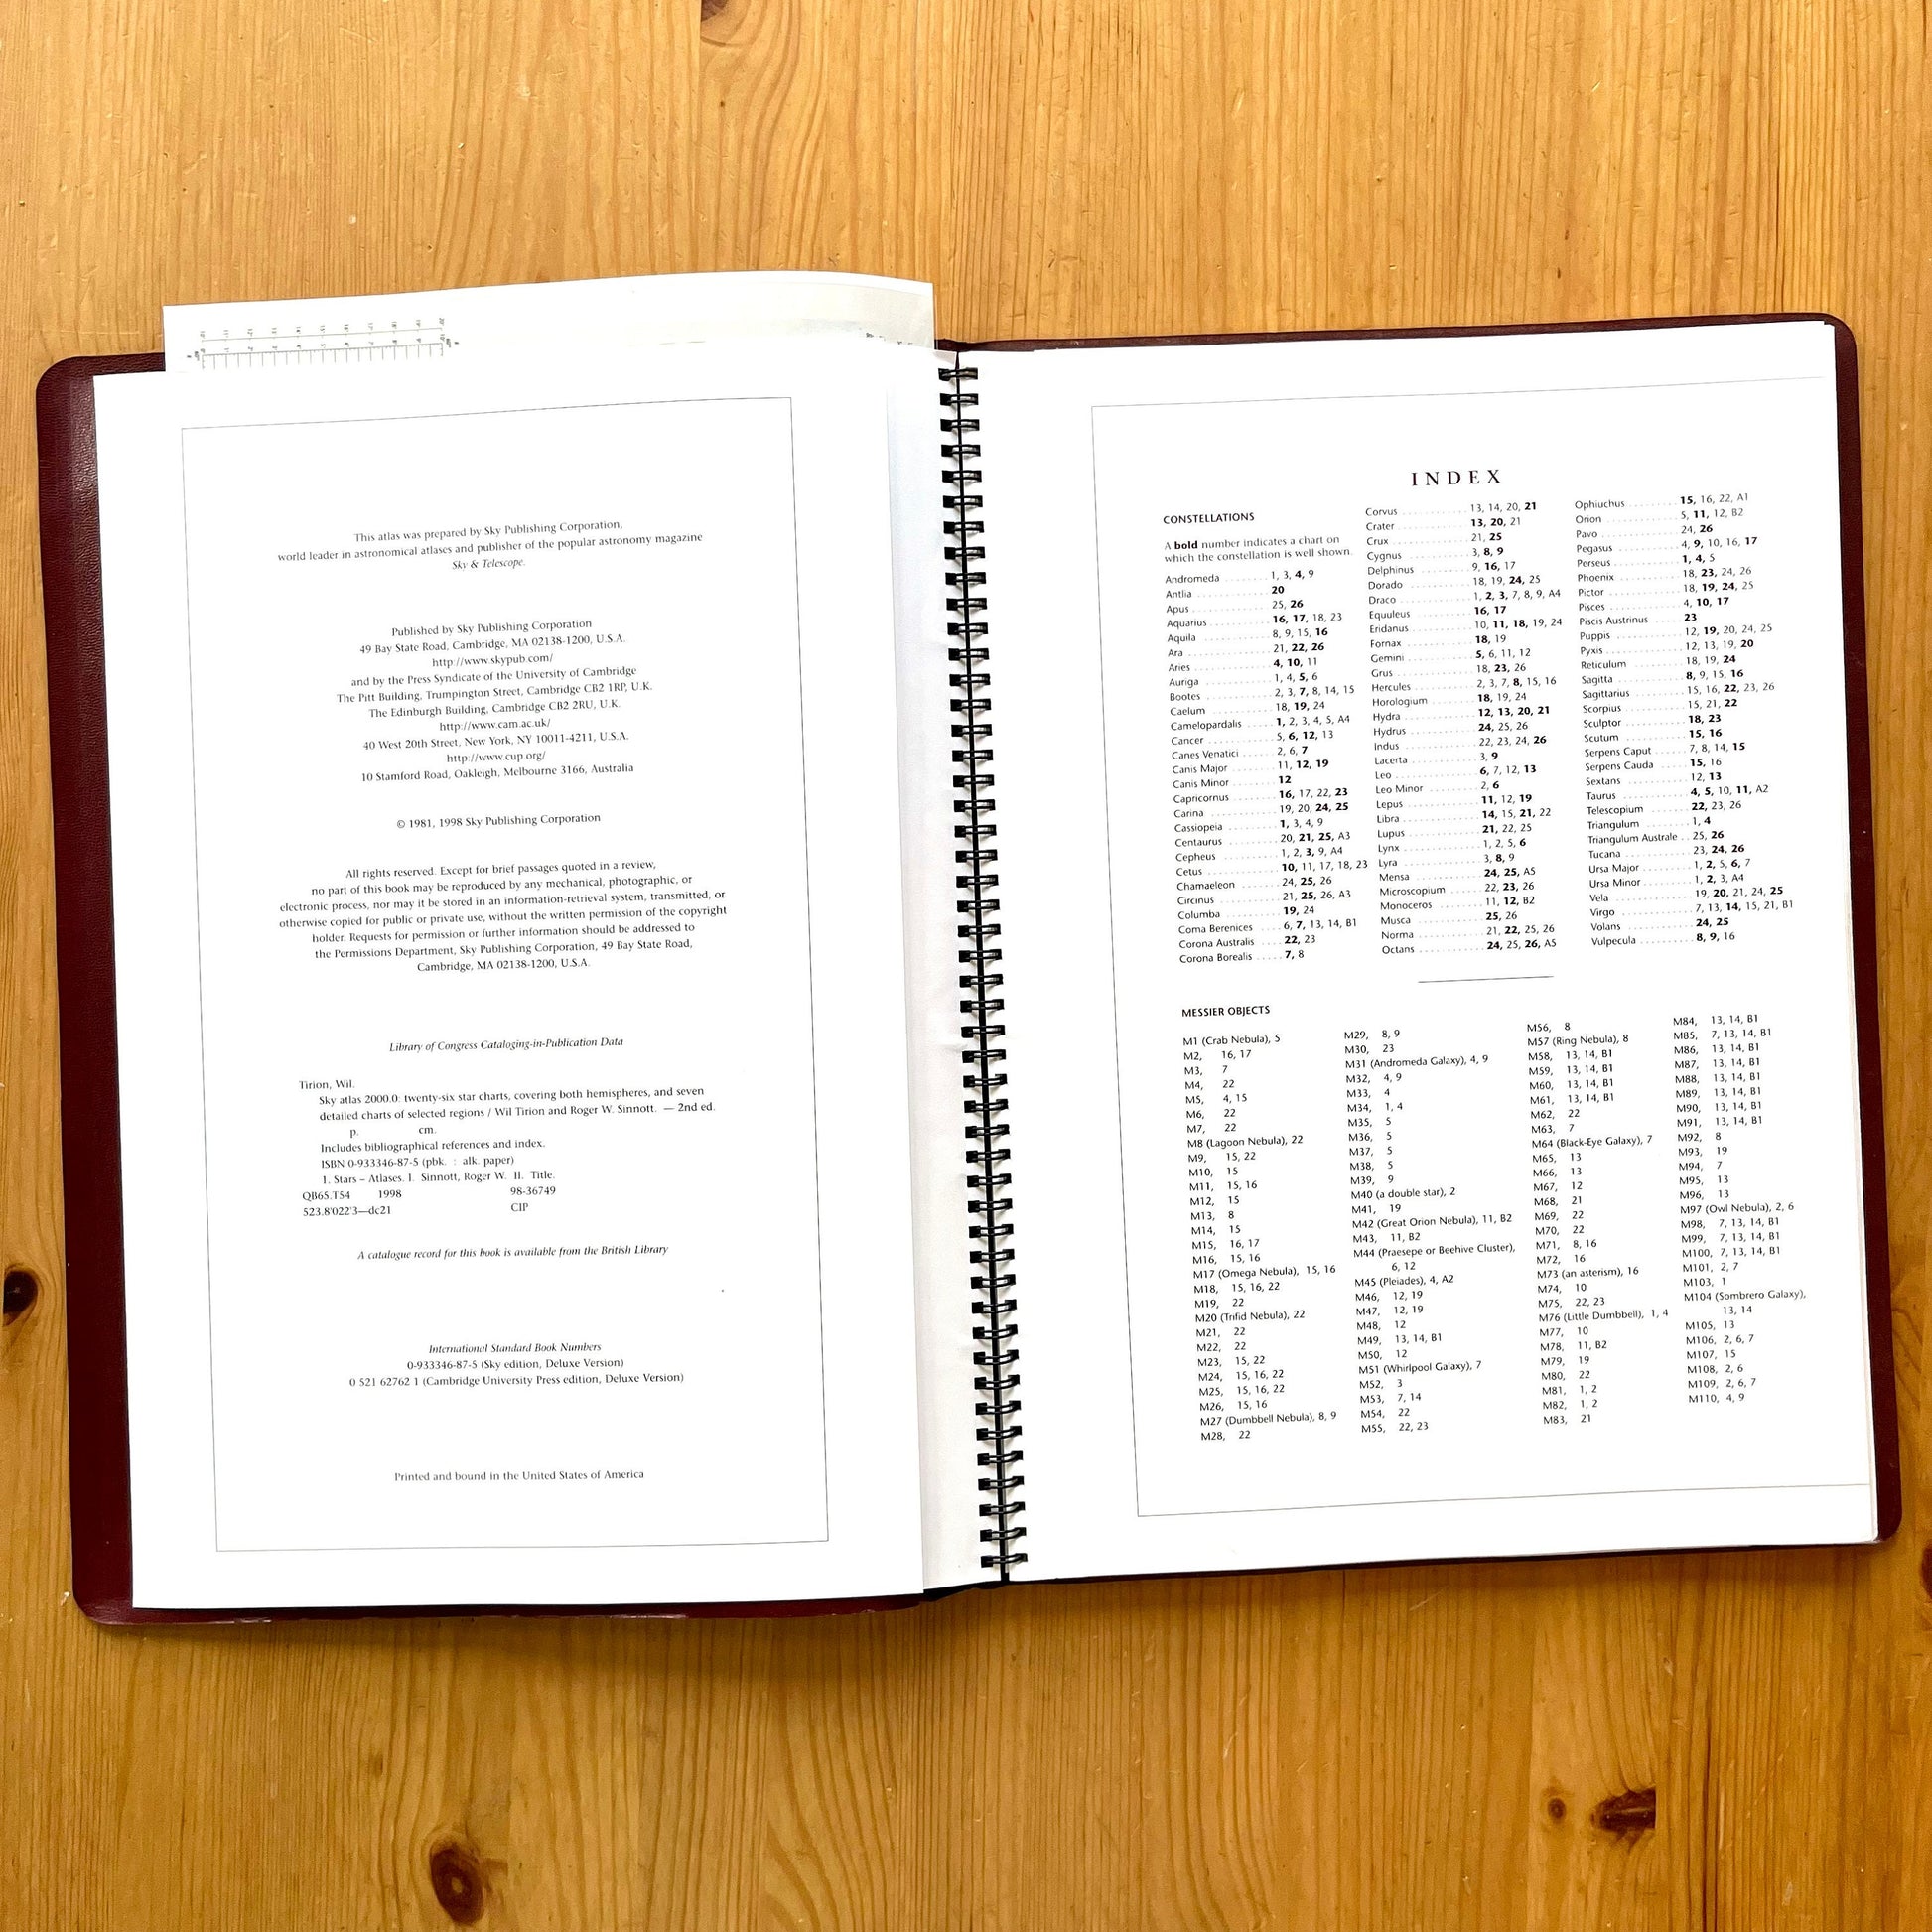 This atlas was prepared by Sky Publishing Corporation,
world leader in astronomical atlases and publisher of the popular astronomy magazine
Sky & Telescope.
Published by Sky Publishing Corporation
49 Bay State Road, Cambridge, MA 02138-1200, U.S.A.
http://www.skypub.com/
and by the Press Syndicate of the University of Cambridge
The Pitt Building, Trumpington Street, Cambridge CB2 1RP, U.K.
The Edinburgh Building, Cambridge CB2 2RU, U.K.
http://www.cam.ac.uk/
40 West 20th Street, New York, NY 10011-4211, U.S.A.
http://www.cup.org/
10 Stamford Road, Oakleigh, Melbourne 3166, Australia
© 1981, 1998 Sky Publishing Corporation
All rights reserved. Except for brief passages quoted in a review,
no part of this book may be reproduced by any mechanical, photographic, or
electronic process, nor may it be stored in an information-retrieval system, transmitted, or
otherwise copied for public or private use, without the written permission of the copyright
holder. Requests for permission or further information should be addressed to
the Permissions Department, Sky Publishing Corporation, 49 Bay State Road,
Cambridge, MA 02138-1200, U.S.A.
Library of Congress Cataloging-in-Publication Data
Tirion, Wil.
Sky atlas 2000.0: twenty-six star charts, covering both hemispheres, and seven
detailed charts of selected regions / Wil Tirion and Roger W. Sinnott. — 2nd ed.
p. cm.
Includes bibliographical references and index.
ISBN 0-933346-87-5 (pbk. : alk. paper)
1. Stars – Atlases. I. Sinnott, Roger W. II. Title.
QB65.T54 1998 98-36749
523.8'022'3—dc21 CIP
A catalogue record for this book is available from the British Library
International Standard Book Numbers
0-933346-87-5 (Sky edition, Deluxe Version)
0 521 62762 1 (Cambridge University Press edition, Deluxe Version)
Printed and bound in the United States of America
INDEX
CONSTELLATIONS
A bold number indicates a chart on
which the constellation is well shown.
Andromeda ........ 1, 3, 4, 9
Antlia ........ 20
Apus ........ 25, 26
Aquarius ........ 16, 17, 18, 23
Aquila ........ 8, 9, 15, 16
Ara ........ 21, 22, 26
Aries ........ 4, 10, 11
Auriga ........ 1, 4, 5, 6
Bootes ........ 2, 3, 7, 8, 14, 15
Caelum ........ 18, 19, 24
Camelopardalis ..... 1, 2, 3, 4, 5, A4
Cancer ........ 5, 6, 12, 13
Canes Venatici ..... 2, 6, 7
Canis Major ........ 11, 12, 19
Canis Minor ........ 12
Capricornus ........ 16, 17, 22, 23
Carina ........ 19, 20, 24, 25
Cassiopeia ........ 1, 3, 4, 9
Centaurus ........ 20, 21, 25, A3
Cepheus ........ 1, 2, 3, 9, A4
Cetus ........ 10, 11, 17, 18, 23
Chamaeleon ........ 24, 25, 26
Circinus ........ 21, 25, 26, A3
Columba ........ 19, 24
Coma Berenices .... 6, 7, 13, 14, B1
Corona Australis .... 22, 23
Corona Borealis ..... 7, 8
Corvus ........ 13, 14, 20, 21
Crater ........ 13, 20, 21
Crux ........ 21, 25
Cygnus ........ 3, 8, 9
Delphinus ........ 9, 16, 17
Dorado ........ 18, 19, 24, 25
Draco ........ 1, 2, 3, 7, 8, 9, A4
Equuleus ........ 16, 17
Eridanus ........ 10, 11, 18, 19, 24
Fornax ........ 18, 19
Gemini ........ 5, 6, 11, 12
Grus ........ 18, 23, 26
Hercules ........ 2, 3, 7, 8, 15, 16
Horologium ........ 18, 19, 24
Hydra ........ 12, 13, 20, 21
Hydrus ........ 24, 25, 26
Indus ........ 22, 23, 24, 26
Lacerta ........ 3, 9
Leo ........ 6, 7, 12, 13
Leo Minor ........ 2, 6
Lepus ........ 11, 12, 19
Libra ........ 14, 15, 21, 22
Lupus ........ 21, 22, 25
Lynx ........ 1, 2, 5, 6
Lyra ........ 3, 8, 9
Mensa ........ 24, 25, A5
Microscopium ........ 22, 23, 26
Monoceros ........ 11, 12, B2
Musca ........ 25, 26
Norma ........ 21, 22, 25, 26
Octans ........ 24, 25, 26, A5
Ophiuchus ........ 15, 16, 22, A1
Orion ........ 5, 11, 12, B2
Pavo ........ 24, 26
Pegasus ........ 4, 9, 10, 16, 17
Perseus ........ 1, 4, 5
Phoenix ........ 18, 23, 24, 26
Pictor ........ 18, 19, 24, 25
Pisces ........ 4, 10, 17
Piscis Austrinus ..... 23
Puppis ........ 12, 19, 20, 24, 25
Pyxis ........ 12, 13, 19, 20
Reticulum ........ 18, 19, 24
Sagitta ........ 8, 9, 15, 16
Sagittarius ........ 15, 16, 22, 23, 26
Scorpius ........ 15, 21, 22
Sculptor ........ 18, 23
Scutum ........ 15, 16
Serpens Caput ..... 7, 8, 14, 15
Serpens Cauda ..... 15, 16
Sextans ........ 12, 13
Taurus ........ 4, 5, 10, 11, A2
Telescopium ........ 22, 23, 26
Triangulum ........ 1, 4
Triangulum Australe .. 25, 26
Tucana ........ 23, 24, 26
Ursa Major ........ 1, 2, 5, 6, 7
Ursa Minor ........ 1, 2, 3, A4
Vela ........ 19, 20, 21, 24, 25
Virgo ........ 7, 13, 14, 15, 21, B1
Volans ........ 24, 25
Vulpecula ........ 8, 9, 16
MESSIER OBJECTS
M1 (Crab Nebula), 5
M2, 16, 17
M3, 7
M4, 22
M5, 4, 15
M6, 22
M7, 22
M8 (Lagoon Nebula), 22
M9, 15, 22
M10, 15
M11, 15, 16
M12, 15
M13, 8
M14, 15
M15, 16, 17
M16, 15, 16
M17 (Omega Nebula), 15, 16
M18, 15, 16, 22
M19, 22
M20 (Trifid Nebula), 22
M21, 22
M22, 22
M23, 15, 22
M24, 15, 16, 22
M25, 15, 16, 22
M26, 15, 16
M27 (Dumbbell Nebula), 8, 9
M28, 22
M29, 8, 9
M30, 23
M31 (Andromeda Galaxy), 4, 9
M32, 4, 9
M33, 4
M34, 1, 4
M35, 5
M36, 5
M37, 5
M38, 5
M39, 9
M40 (a double star), 2
M41, 19
M42 (Great Orion Nebula), 11, B2
M43, 11, B2
M44 (Praesepe or Beehive Cluster),
6, 12
M45 (Pleiades), 4, A2
M46, 12, 19
M47, 12, 19
M48, 12
M49, 13, 14, B1
M50, 12
M51 (Whirlpool Galaxy), 7
M52, 3
M53, 7, 14
M54, 22
M55, 22, 23
M56, 8
M57 (Ring Nebula), 8
M58, 13, 14, B1
M59, 13, 14, B1
M60, 13, 14, B1
M61, 13, 14, B1
M62, 22
M63, 7
M64 (Black-Eye Galaxy), 7
M65, 13
M66, 13
M67, 12
M68, 21
M69, 22
M70, 22
M71, 8, 16
M72, 16
M73 (an asterism), 16
M74, 10
M75, 22, 23
M76 (Little Dumbbell), 1, 4
M77, 10
M78, 11, B2
M79, 19
M80, 22
M81, 1, 2
M82, 1, 2
M83, 21
M84, 13, 14, B1
M85, 7, 13, 14, B1
M86, 13, 14, B1
M87, 13, 14, B1
M88, 13, 14, B1
M89, 13, 14, B1
M90, 13, 14, B1
M91, 13, 14, B1
M92, 8
M93, 19
M94, 7
M95, 13
M96, 13
M97 (Owl Nebula), 2, 6
M98, 7, 13, 14, B1
M99, 7, 13, 14, B1
M100, 7, 13, 14, B1
M101, 2, 7
M103, 1
M104 (Sombrero Galaxy),
13, 14
M105, 13
M106, 2, 6, 7
M107, 15
M108, 2, 6
M109, 2, 6, 7
M110, 4, 9